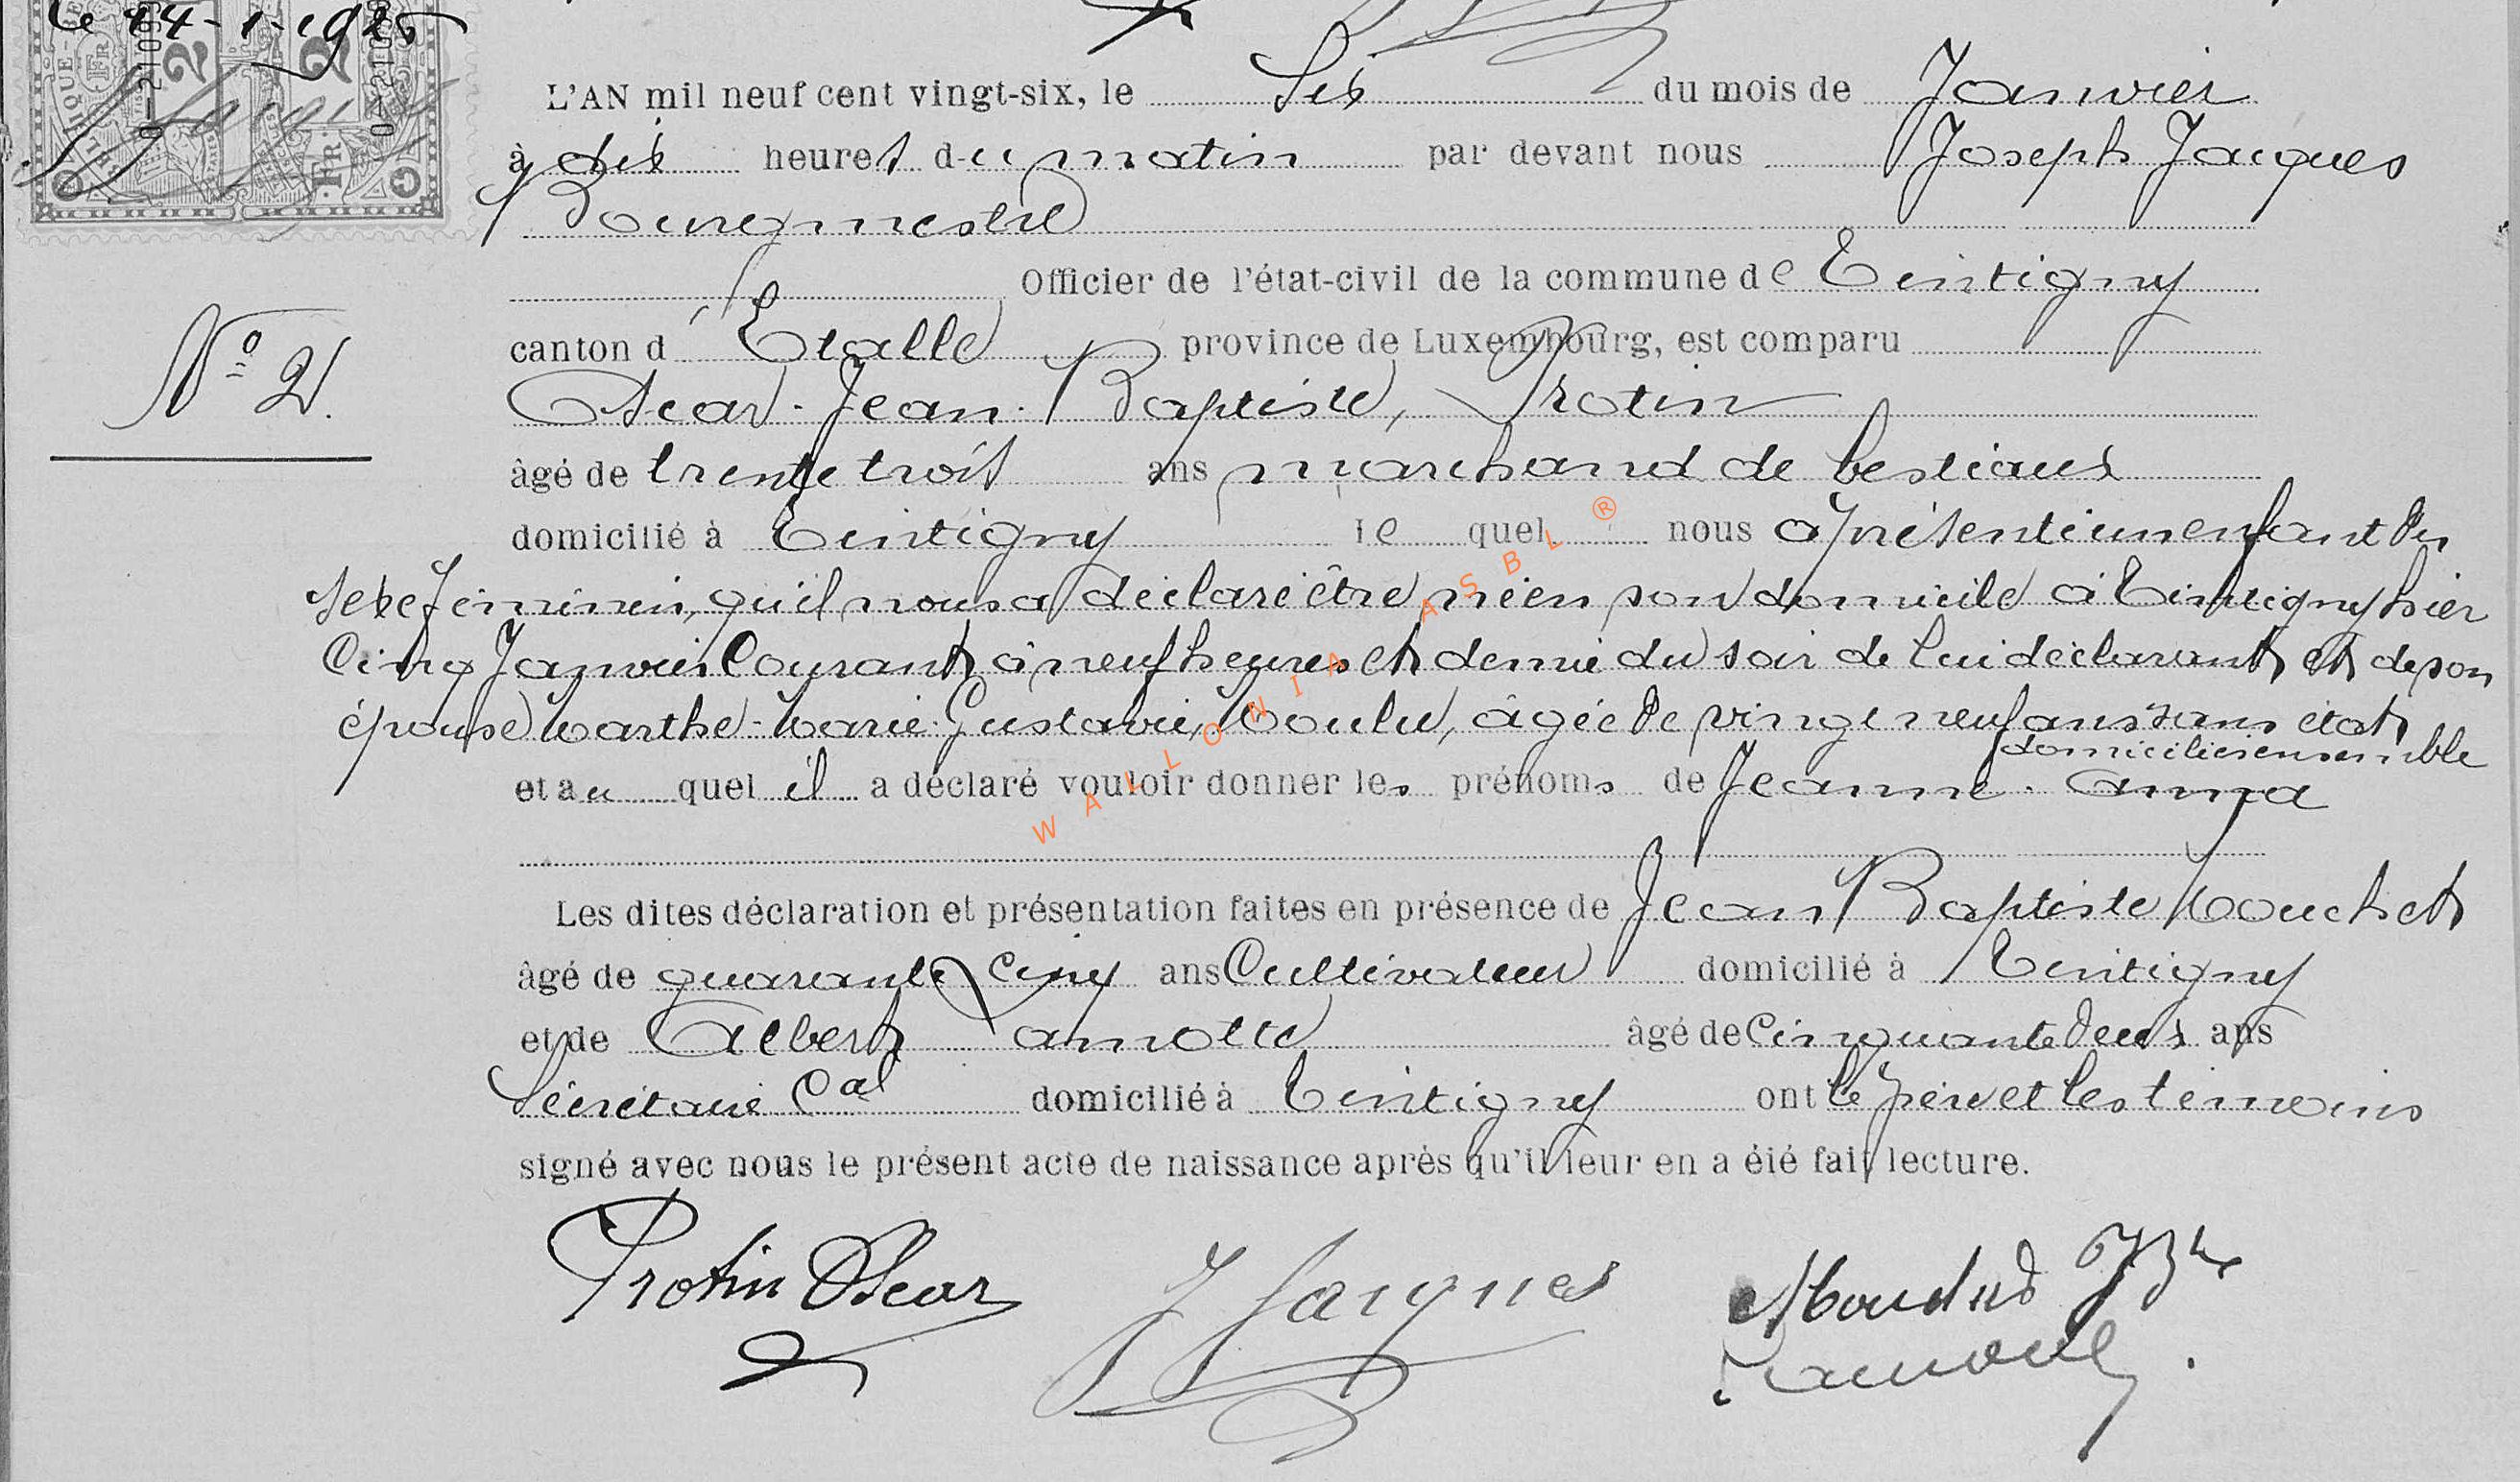 le 14-1-1926
J Jacques
L'AN mil neuf cent vingt-six, le Six du mois de Janvier
à dix heures du matin par devant nous Joseph Jacques
Bourgmestre
Officier de l'état-civil de la commune de Tintigny
canton d'Etalle province de Luxembourg, est comparu
N° 2.
Oscar-Jean-Baptiste, Protin
âgé de trente trois ans marchand de bestiaux
domicilié à Tintigny le quel nous a présenté un enfant du
sexe féminin, qu'il nous a déclaré être né en son domicile à Tintigny hier
Cinq Janvier Courant à neuf heures et demie du soir de lui déclarant et de son
épouse Marthe-Marie-Gustavie, Moulu, âgée de vingt neuf ans sans état
domiciliés ensemble
et au quel il a déclaré vouloir donner les prénoms de Jeanne-Anna
WALLONIA ASBL ®
Les dites déclaration et présentation faites en présence de Jean Baptiste Mouchet
âgé de quarante cinq ans Cultivateur domicilié à Tintigny
et de Albert Lamotte âgé de Cinquante deux ans
Sécrétaire Cal domicilié à Tintigny ont le père et les témoins
signé avec nous le présent acte de naissance après qu'il leur en a été fait lecture.
Protin Oscar J Jacques